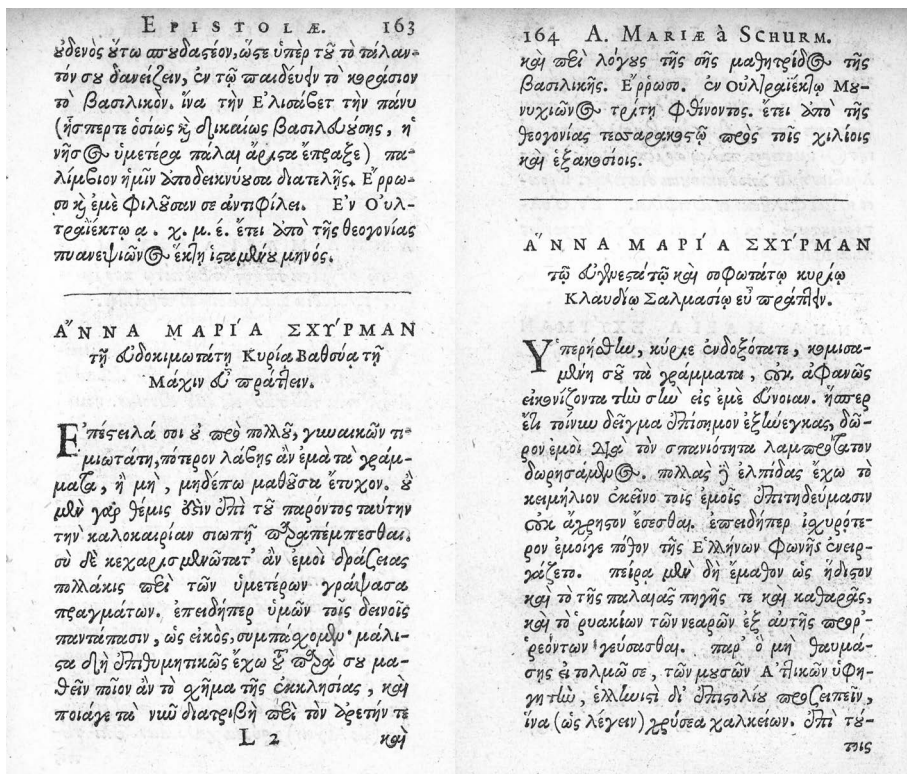 EPISTOLÆ. 163
ὐδενὸς ὕτω σπυδαςέον, ὥςε ὑπὲρ τῦ τὸ τάλαν-
τόν συ δανείζειν, ἐν τῷ παιδεύειν τὸ κοράσιον
τὸ βασιλικὸν. ἵνα τὴν Ἐλισάβετ τὴν πάνυ
(ἧσπερτε ὁσίως καὶ δικαίως βασιλευύσης, ἡ
νῆσος ὑμετέρα πάλαι ἄριςα ἔπραξε) πα-
λίμβιον ἡμῖν ἀποδεικνύυσα διατελῆς. Ἔρρω-
σο καὶ ἐμὲ φιλῦσαν σε ἀντιφίλει. Ἐν Οὐλ-
τραϊέκτῳ α. χ. μ. έ. ἔτει ἀπὸ τῆς θεογονίας
πυανεψιῶνος ἕκτῃ ἱςαμένυ μηνός.
ἌΝΝΑ ΜΑΡΊΑ ΣΧΥΡΜΑΝ
τῇ εὐδοκιμωτάτῃ Κυρίᾳ Βαθσύᾳ τῇ
Μάχιν εὖ πράττειν.
Ἐπέςειλά σοι ὐ πρὸ πολλῦ, γυναικῶν τι-
μιωτάτη, πότερον λάβης ἂν ἐμὰ τὰ γράμ-
ματα, ἢ μὴ, μηδέπω μαθῦσα ἔτυχον. ὐ
μὲν γὰρ θέμις ὐδὲν ἐπὶ τῦ παρόντος ταύτην
τὴν καλοκαιρίαν σιωπῇ παραπέμπεσθαι.
σὺ δὲ κεχαρισμενῶτατ' ἂν ἐμοὶ δράζειας
πολλάκις περὶ τῶν ὑμετέρων γράψασα
πραγμάτων. ἐπειδήπερ ὑμῶν τοῖς δεινοῖς
παντάπασιν, ὡς εἰκὸς, συμπάχομεν· μάλι-
ςα δὴ ἐπιθυμητικῶς ἔχω τῦ παρά συ μα-
θεῖν ποῖον ἂν τὸ χῆμα τῆς ἐκκλησίας, καὶ
ποιάγε τὰ νῦν διατριβὴ περὶ τὸν ἀρετήν τε
L 2 καὶ
164 A. MARIÆ à SCHURM.
καὶ περὶ λόγυς τῆς σῆς μαθητρίδος τῆς
βασιλικῆς. Ἔρρωσο. ἐν Οὐλτραϊέκτῳ Μυ-
νυχιῶνος τρίτῃ φθίνοντος. ἔτει ἀπὸ τῆς
θεογονίας τεσσαρακοςῷ πρὸς τοῖς χιλίοις
καὶ ἑξακοσίοις.
ἌΝΝΑ ΜΑΡΊΑ ΣΧΥΡΜΑΝ
τῷ εὐγενεςάτῳ καὶ σοφωτάτῳ κυρίῳ
Κλαυδίῳ Σαλμασίῳ εὖ πράττειν.
Ὑπερήσθην, κύριε ἐνδοξότατε, κομισα-
μένη σῦ τὰ γράμματα, ὐκ ἀφανῶς
εἰκονίζοντα τὴν σὴν εἰς ἐμὲ εὔνοιαν. ἥσπερ
ἔτι τοίνυν δεῖγμα ἐπίσημον ἐξήνεγκας, δῶ-
ρον ἐμοὶ διὰ τὸν σπανιότητα λαμπρότατον
δωρησάμενος. πολλὰς γὰρ ἐλπίδας ἔχω τὸ
κειμήλιον ἐκεῖνο τοῖς ἐμοῖς ἐπιτηδεύμασιν
ὐκ ἄχρηςον ἔσεσθαι. ἐπειδήπερ ἰχυρότε-
ρον ἐμοίγε πόθον τῆς Ἑλλήνων φωνῆς ἐνειρ-
γάζετο. πείρᾳ μὲν δὴ ἔμαθον ὡς ἥδιςον
καὶ τὸ τῆς παλαιᾶς πηγῆς τε καὶ καθαρᾶς,
καὶ τὸ ῥυακίων τῶν νεαρῶν ἐξ αὐτῆς πορ'-
ρεόντων γεύσασθαι. παρ' ὃ μὴ θαυμά-
σῃς εἰ τολμῶ σε, τῶν μυσῶν Ἀττικῶν ὑφη-
γητὴν, ἑλληνιςὶ δι' ἐπιςολίυ προσειπεῖν,
ἵνα (ὡς λέγειν) χρύσεα χαλκείων. ἐπὶ τύ-
τοις